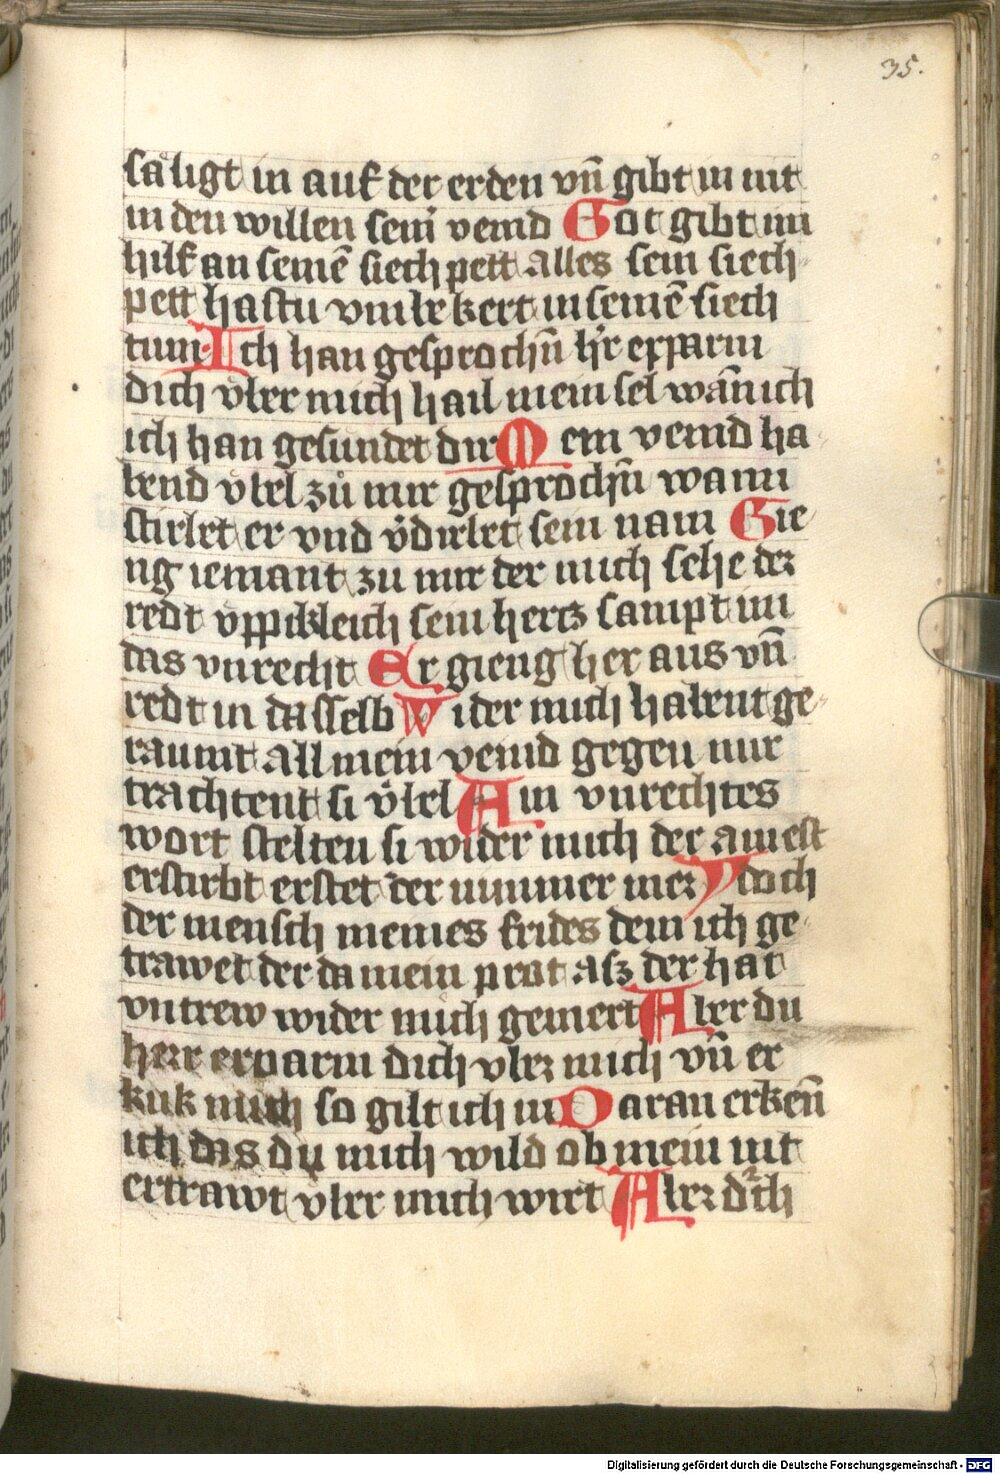 35.
säligt in auf der erden vn̄ gibt in nit
in den willen seiñ veind Got gibt im
hilf an seinē siech pett alles sein siech-
pett hastu vmbekert in seinē siech
tum Ich han gesprochn̄ h̓r erparm
dich vber mich hail mein sel wān ich
ich han gesundet dir Mein veind ha-
bend vbel zů mir gesprochn̄ wann
stirbet er vnd v̓dirbet sein nam Gie
ng iemant zu mir der mich sehe der
redt vppikleich sein hertz sampt im
das vnrecht Er gieng her aus vn̄
redt in dasselb Wider mich habent ge-
raunt all mein veind gegen mir
trachtent si v̓bel Ain vnrechtes
wort stelten si wider mich der ainest
erstirbt erstet der nimmer mer Ydoch
der mensch meines frides dem ich ge-
trawet der da mein prot asz der hat
vntrew wider mich gemert Aber du
herr erparm dich vber mich vn̄ er
kuk mich so gilt ich in Daran erkeñ
ich das du mich wild ob mein nit
ertrawt vber mich wirt Aber durch
Digitalisierung gefördert durch die Deutsche Forschungsgemeinschaft - DFG